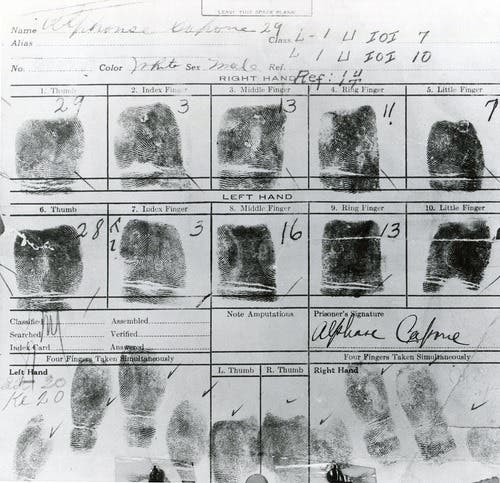 LEAVE THIS SPACE BLANK
Name Alphonse Capone 29 Class. L-1 U IOI 7
Alias L 1 U IOI 10
No. Color White Sex Male Ref.
RIGHT HAND Ref: 14
1. Thumb 2. Index Finger 3. Middle Finger 4. Ring Finger 5. Little Finger
29 3 13 11 7
LEFT HAND
6. Thumb 7. Index Finger 8. Middle Finger 9. Ring Finger 10. Little Finger
28 3 16 13
Classified Assembled Note Amputations Prisoner's Signature
Searched Verified Alphonse Capone
Index Card Answered
Four Fingers Taken Simultaneously Four Fingers Taken Simultaneously
Left Hand L. Thumb R. Thumb Right Hand
20
Re 20